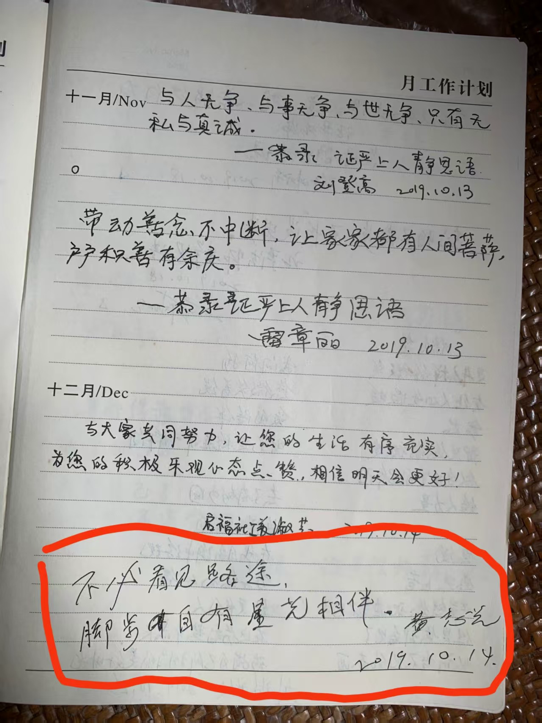 划
月工作计划
十一月/Nov 与人无争、与事无争、与世无争、只有无
私与真诚。
—恭录: 证严上人静思语
刘登高 2019.10.13
带动善念不中断，让家家都有人间菩萨，
户户积善有余庆。
—恭录证严上人静思语
雷章丽 2019.10.13
十二月/Dec
与大家共同努力，让您的生活有序充实，
为您的积极乐观心态点赞，相信明天会更好！
君福社工 2019.10.14
不必看见路途，
脚步自有星光相伴。 黄
2019.10.14.